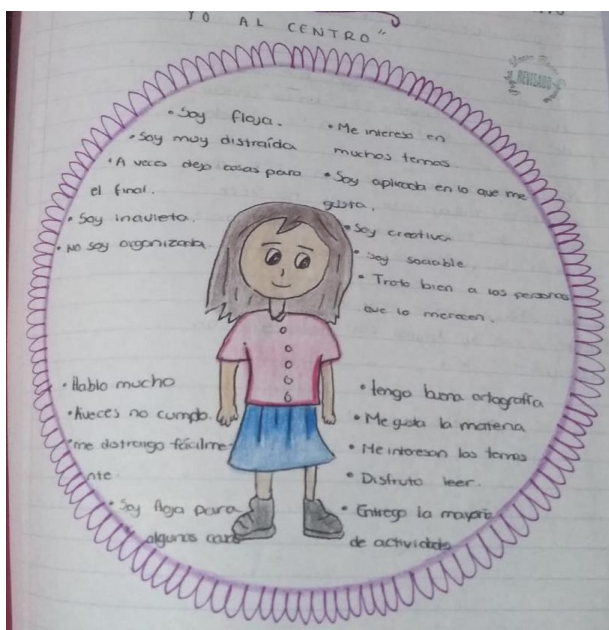 YO AL CENTRO"
REVISADO
• Soy floja.
• Soy muy distraída
• A veces dejo cosas para
el final.
• Soy inquieta.
• No soy organizada.
• Me intereso en
muchos temas.
• Soy aplicada en lo que me
gusta.
• Soy creativa
• Soy sociable
• Trato bien a las personas
que lo merecen.
• Hablo mucho
• Aveces no cumplo.
• me distraigo fácilme-
nte.
• Soy floja para
algunas
• tengo buena ortografía
• Me gusta la materia
• Me interesan los temas
• Disfruto leer.
• Entrego la mayoría
de actividades